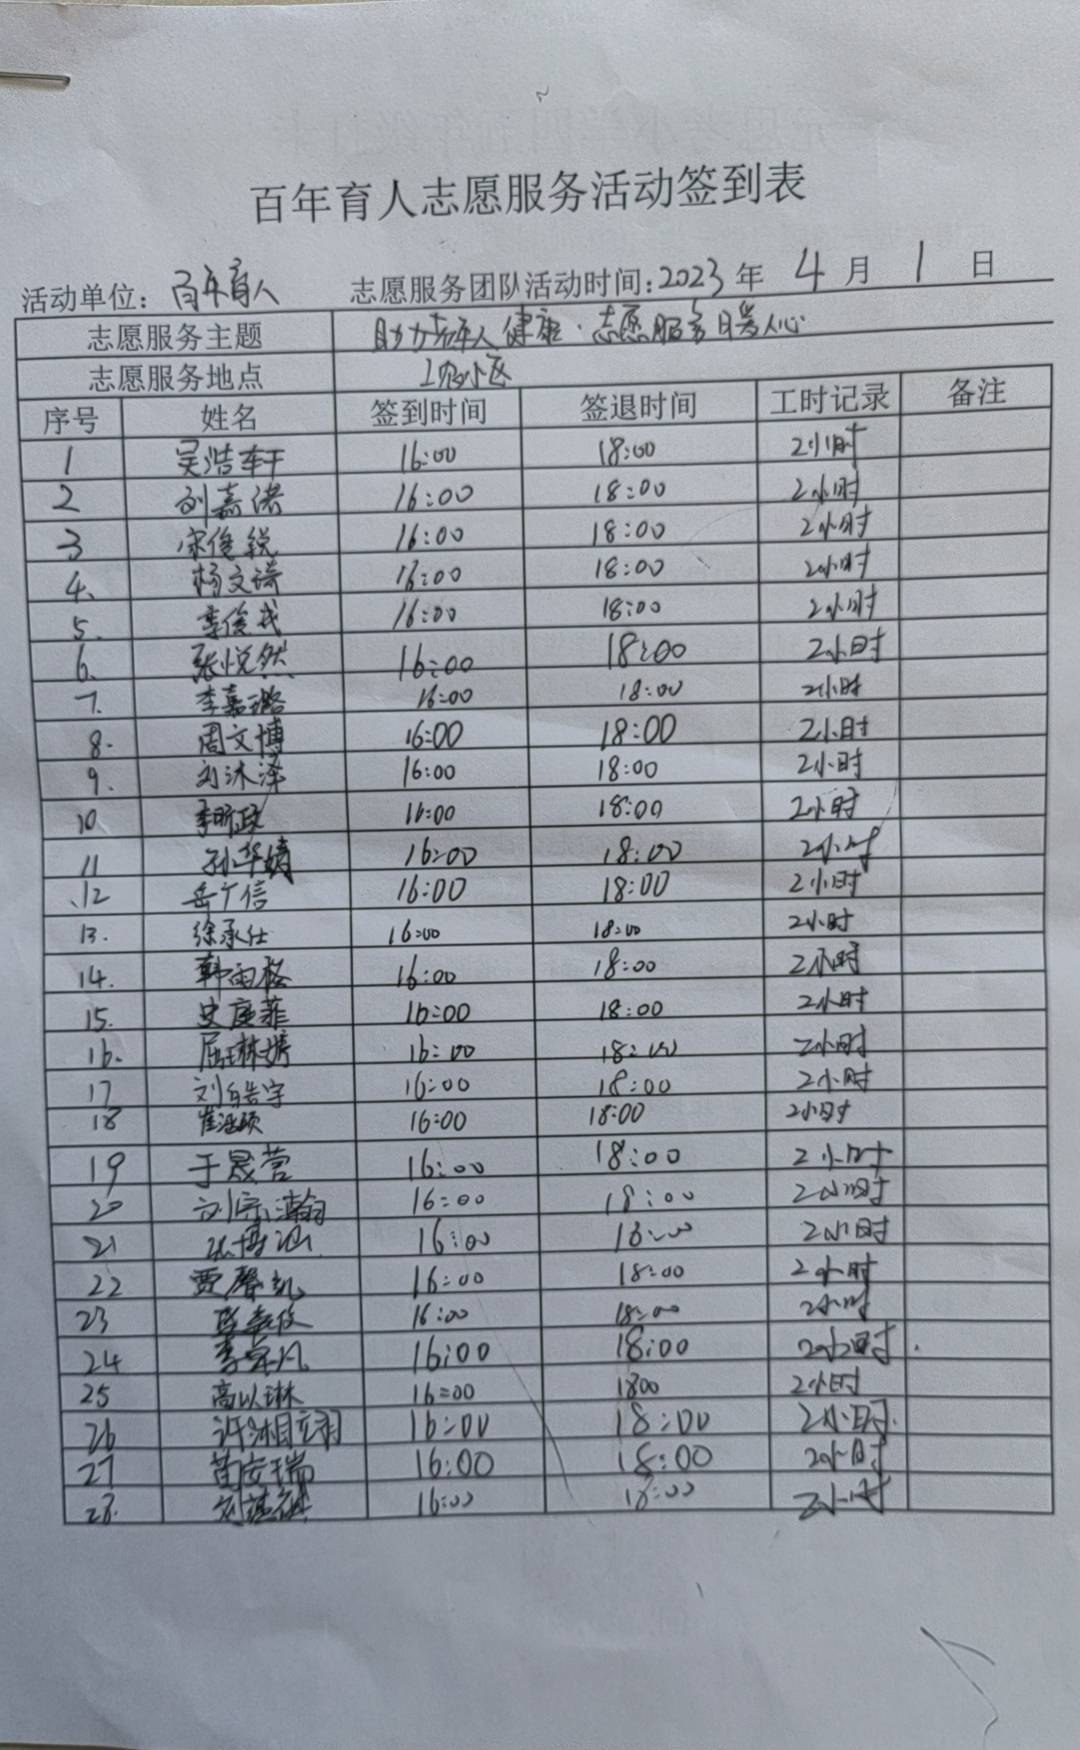 百年育人志愿服务活动签到表
活动单位：百年育人 志愿服务团队活动时间：2023年 4月 1日
志愿服务主题 助力老年人健康·志愿服务暖人心
志愿服务地点 小区
序号 姓名 签到时间 签退时间 工时记录 备注
1 吴浩轩 16:00 18:00 2小时
2 刘嘉诺 16:00 18:00 2小时
3 宋俊锐 16:00 18:00 2小时
4、 杨文琦 16:00 18:00 2小时
5. 李俊 16:00 18:00 2小时
6、 张悦然 16:00 18:00 2小时
7. 李嘉璐 16:00 18:00 2小时
8. 周文博 16:00 18:00 2小时
9. 刘沐泽 16:00 18:00 2小时
10 李昕政 16:00 18:00 2小时
11 孙华婧 16:00 18:00 2小时
12 岳广信 16:00 18:00 2小时
13. 徐承仕 16:00 18:00 2小时
14. 韩雨格 16:00 18:00 2小时
15. 史庭菲 16:00 18:00 2小时
16. 屈琳婧 16:00 18:00 2小时
17 刘皓宇 16:00 18:00 2小时
18 崔硕 16:00 18:00 2小时
19 于晟营 16:00 18:00 2小时
20 刘宗瀚 16:00 18:00 2小时
21 张博涵 16:00 18:00 2小时
22 贾馨凯 16:00 18:00 2小时
23 16:00 18:00 2小时
24 李卓凡 16:00 18:00 2小时
25 高以琳 16:00 1800 2小时
26 许湘翊 16:00 18:00 2小时
27 苗安瑞 16:00 18:00 2小时
28. 刘 16:00 18:00 2小时